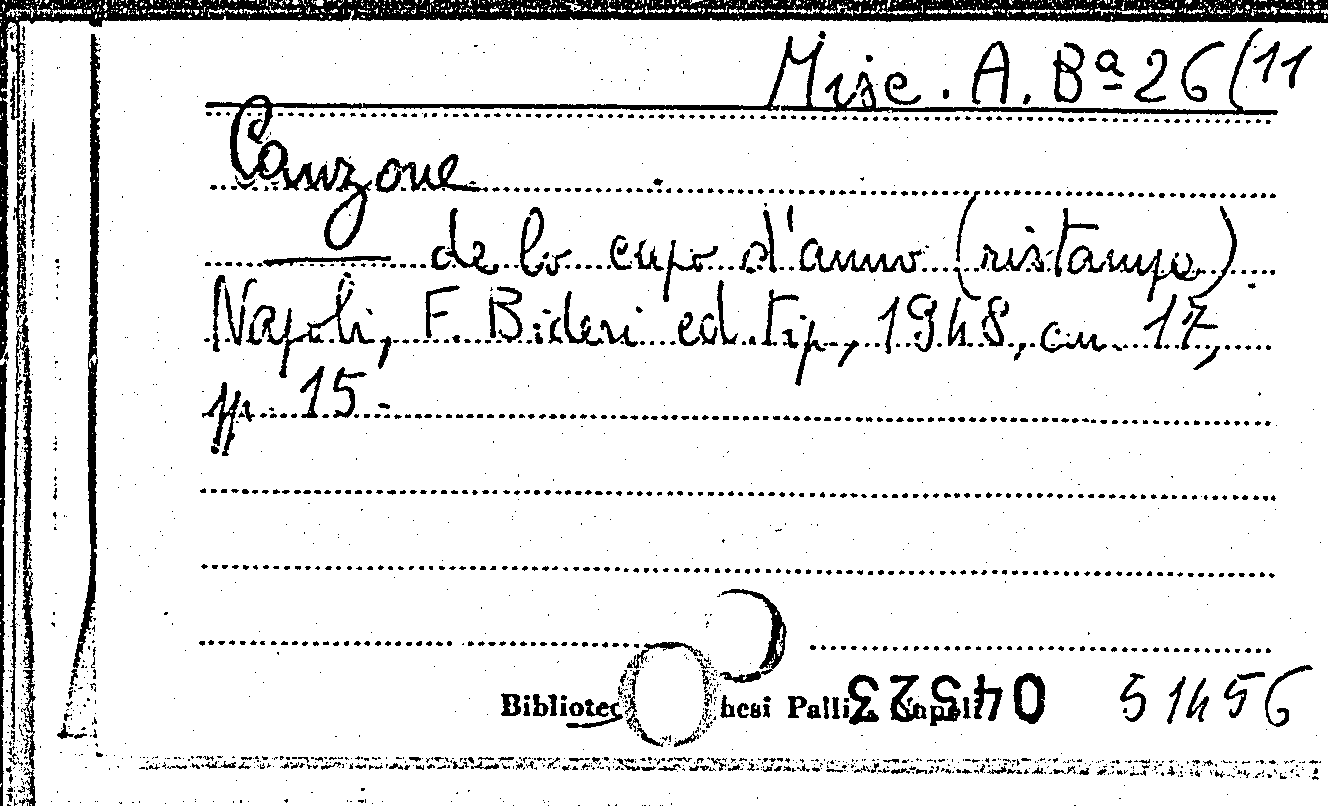 Misc. A. Bª 26(11
Canzone
—— de lo capo d'anno (ristampa).
Napoli, F. Bideri ed. tip., 1948, cm. 17,
pp. 15.
Bibliotec hesi Palli Napoli 51456